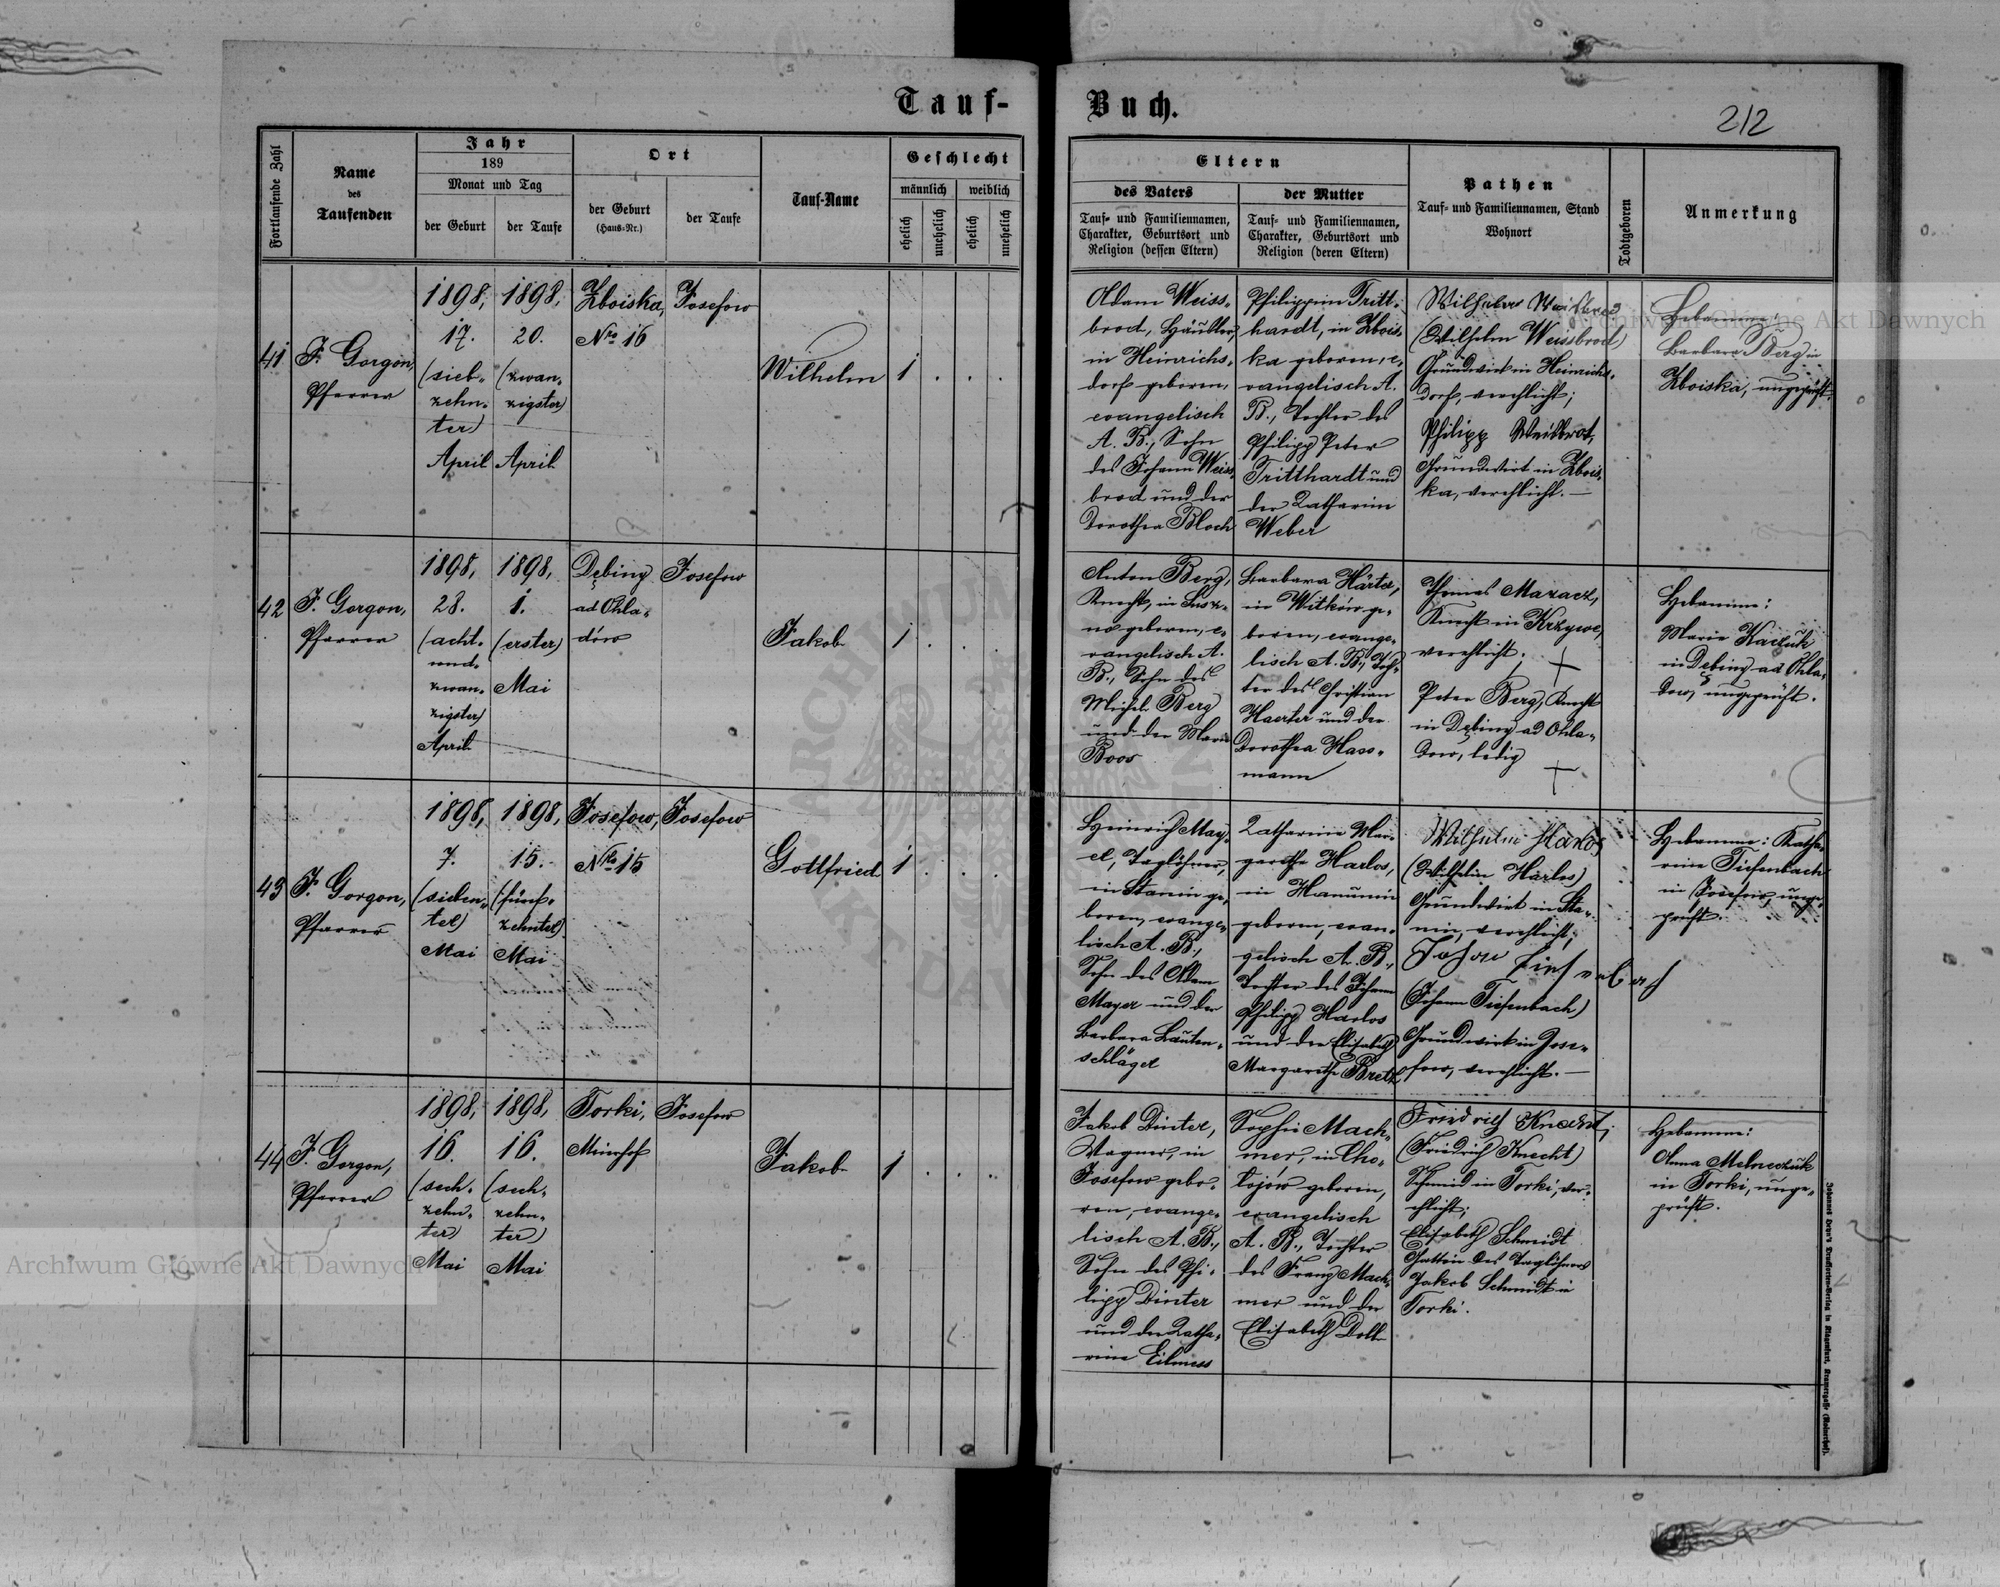 Tauf-
Buch.
212
Fortlaufende Zahl
Name
des
Taufenden
Jahr
189
Monat und Tag
der Geburt
der Taufe
Ort
der Geburt
(Haus-Nr.)
der Taufe
Tauf-Name
Geschlecht
männlich
weiblich
ehelich
unehelich
ehelich
unehelich
Eltern
des Vaters
Tauf- und Familiennamen,
Charakter, Geburtsort und
Religion (dessen Eltern)
der Mutter
Tauf- und Familiennamen,
Charakter, Geburtsort und
Religion (deren Eltern)
Pathen
Tauf- und Familiennamen, Stand
Wohnort
Todtgeboren
Anmerkung
41
J. Gorgon,
Pfarrer
1898,
17.
(sieb-
zehn-
ter)
April
1898,
20.
(zwan-
zigster)
April
Zboiska,
Nro 16
Josefow
Wilhelm
1
Adam Weiss-
brod, Häusler,
in Heinrichs-
dorf geboren,
evangelisch
A. B., Sohn
des Johann Weiss-
brod und der
Dorothea Bloch
Philippin Tritt-
hardt, in Zbois-
ka geboren, e-
vangelisch A.
B., Tochter des
Philipp Peter
Tritthardt und
der Katharina
Weber
Wilhelm
(Wilhelm Weissbrod)
Grundwirt in Heinrichs-
dorf, verehlicht;
Philipp Weisbrot,
Grundwirt in Zbois-
ka, verehlicht. —
Hebamme:
Barbara Berg in
Zboiska, ungeprüft.
42
J. Gorgon,
Pfarrer
1898,
28.
(acht-
und-
zwan-
zigster)
April
1898,
1.
(erster)
Mai
Dębiny
ad Ohla-
dów
Josefow
Jakob
1
Anton Berg,
Knecht, in
geboren, e-
vangelisch A.
B., Sohn des
Michel Berg
und der Maria
Boos
Barbara Härter,
in Witków ge-
boren, evange-
lisch A. B., Toch-
ter des Christian
Haerter und der
Dorothea Hass-
mann
Thomas Mazacz,
Knecht in Krzywe,
verehlicht. +
Peter Berg, Knecht
in Dębiny ad Ohla-
dow, ledig +
Hebamme:
Maria Kaczuk
in Dębiny ad Ohla-
dow, ungeprüft.
43
J. Gorgon,
Pfarrer
1898,
7.
(sieben-
ter)
Mai
1898,
15.
(fünf-
zehnter)
Mai
Josefow,
Nro 15
Josefow
Gottfried
1
Heinrich May-
er, Taglöhner,
in Stanin ge-
boren, evange-
lisch A. B.,
Sohn des Adam
Mayer und der
Barbara Lauten-
schläger
Katharina Mar-
garethe Harlos,
in Hanunin
geboren, evan-
gelisch A. B.,
Tochter des Johann
Philipp Harlos
und der Elisabeth
Margarethe Brett
Wilhelm Harlos
(Wilhelm Harlos)
Grundwirt in Sta-
nin, verehlicht;
Johan Tiefenbach
(Johann Tiefenbach)
Grundwirt in Jose-
fow, verehlicht. —
Hebamme: Katha-
rina Tiefenbach
in Josefow, unge-
prüft.
44
J. Gorgon,
Pfarrer
1898,
16.
(sech-
zehn-
ter)
Mai
1898,
16.
(sech-
zehn-
ter)
Mai
Torki,
Josefow
Jakob
1
Jakob Dinter,
Wagner, in
Josefow gebo-
ren, evange-
lisch A. B.,
Sohn des Phi-
lipp Dinter
und der Katha-
rina Eilmess
Sophie Mach-
mer, in Cho-
łojów geboren,
evangelisch
A. B., Tochter
des Franz Mach-
mer und der
Elisabeth Doll
Friedrich Knecht,
(Friedrich Knecht)
Schmied in Torki, ver-
ehlicht;
Elisabeth Schmidt
Gattin des Taglöhners
Jakob Schmidt in
Torki.
Hebamme:
Anna Melneczuk
in Torki, unge-
prüft.
Archiwum Główne Akt Dawnych
Archiwum Główne Akt Dawnych
Archiwum Główne Akt Dawnych